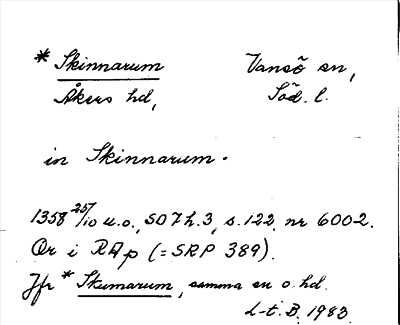 * Skinnarum Vansö sn,
Åkers hd, Söd. l.
in Skinnarum.
1358 25/10 u.o., SO 7 h.3, s.122 nr 6002.
Or i RAp (= SRP 389).
Jfr * Skumarum, samma sn o. hd.
L-t. B. 1983